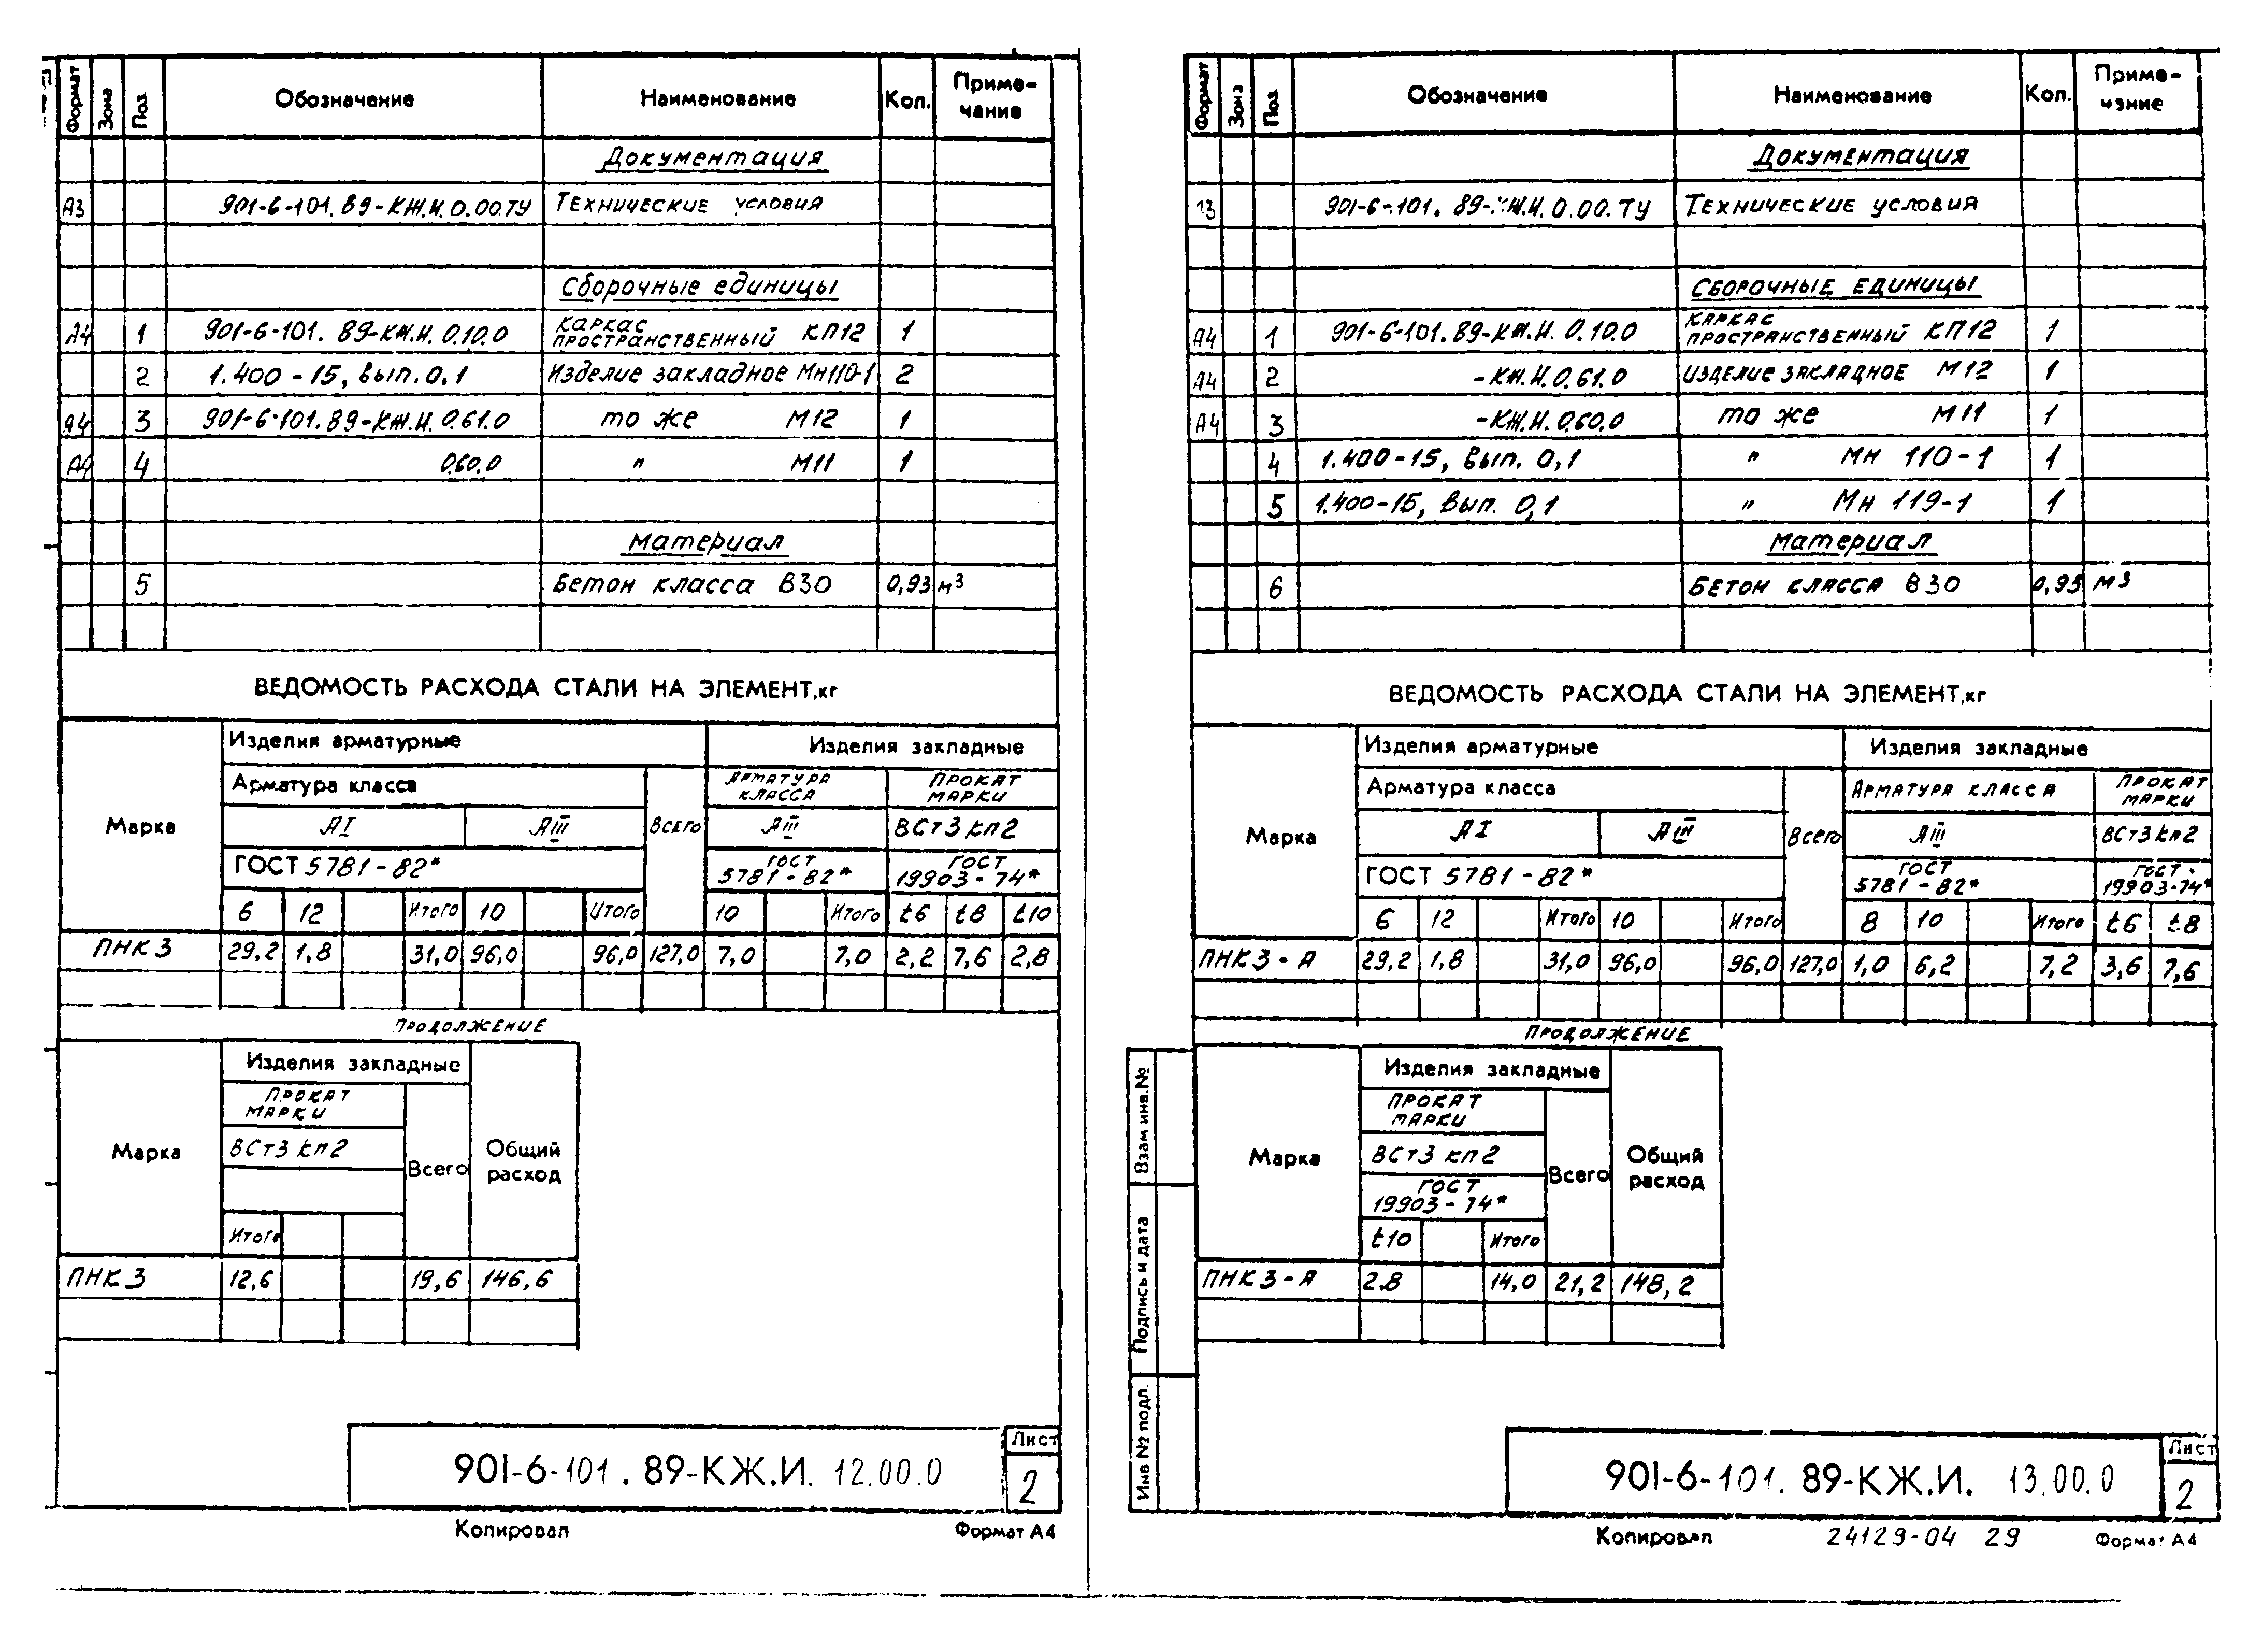 Формат Зона Поз. Обозначение Наименование Кол. Приме-
чание
Документация
А3 901-6-101.89-КЖ.И.0.00.ТУ Технические условия
Сборочные единицы
А4 1 901-6-101.89-КЖ.И.0.10.0 Каркас пространственный КП12 1
2 1.400-15, вып.0,1 Изделие закладное Мн110-1 2
А4 3 901-6-101.89-КЖ.И.0.61.0 то же М12 1
А4 4 0.60.0 " М11 1
Материал
5 Бетон класса В30 0,93 м3
ВЕДОМОСТЬ РАСХОДА СТАЛИ НА ЭЛЕМЕНТ,кг
Марка Изделия арматурные Изделия закладные
Арматура класса Всего Арматура класса Прокат марки
АI АIII АIII ВСт3кп2
ГОСТ 5781-82* ГОСТ 5781-82* ГОСТ 19903-74*
6 12 Итого 10 Итого 10 Итого t6 t8 t10
ПНК3 29,2 1,8 31,0 96,0 96,0 127,0 7,0 7,0 2,2 7,6 2,8
Продолжение
Марка Изделия закладные Общий расход
Прокат марки Всего
ВСт3кп2
Итого
ПНК3 12,6 19,6 146,6
901-6-101.89-КЖ.И. 12.00.0 Лист
2
Копировал Формат А4
Формат Зона Поз. Обозначение Наименование Кол. Приме-
чание
Документация
901-6-101.89-КЖ.И.0.00.ТУ Технические условия
Сборочные единицы
А4 1 901-6-101.89-КЖ.И.0.10.0 Каркас пространственный КП12 1
А4 2 -КЖ.И.0.61.0 Изделие закладное М12 1
А4 3 -КЖ.И.0.60.0 то же М11 1
4 1.400-15, вып.0,1 " Мн 110-1 1
5 1.400-15, вып.0,1 " Мн 119-1 1
Материал
6 Бетон класса В30 0,93 м3
ВЕДОМОСТЬ РАСХОДА СТАЛИ НА ЭЛЕМЕНТ,кг
Марка Изделия арматурные Изделия закладные
Арматура класса Всего Арматура класса Прокат марки
АI АIII АIII ВСт3кп2
ГОСТ 5781-82* ГОСТ 5781-82* ГОСТ 19903-74*
6 12 Итого 10 Итого 8 10 Итого t6 t8
ПНК3-А 29,2 1,8 31,0 96,0 96,0 127,0 1,0 6,2 7,2 3,6 7,6
Продолжение
Марка Изделия закладные Общий расход
Прокат марки Всего
ВСт3кп2
ГОСТ 19903-74*
t10 Итого
ПНК3-А 2.8 14,0 21,2 148,2
Взам инв.№
Подпись и дата
Инв № подл.
901-6-101.89-КЖ.И. 13.00.0 Лист
2
Копировал 24129-04 29 Формат А4